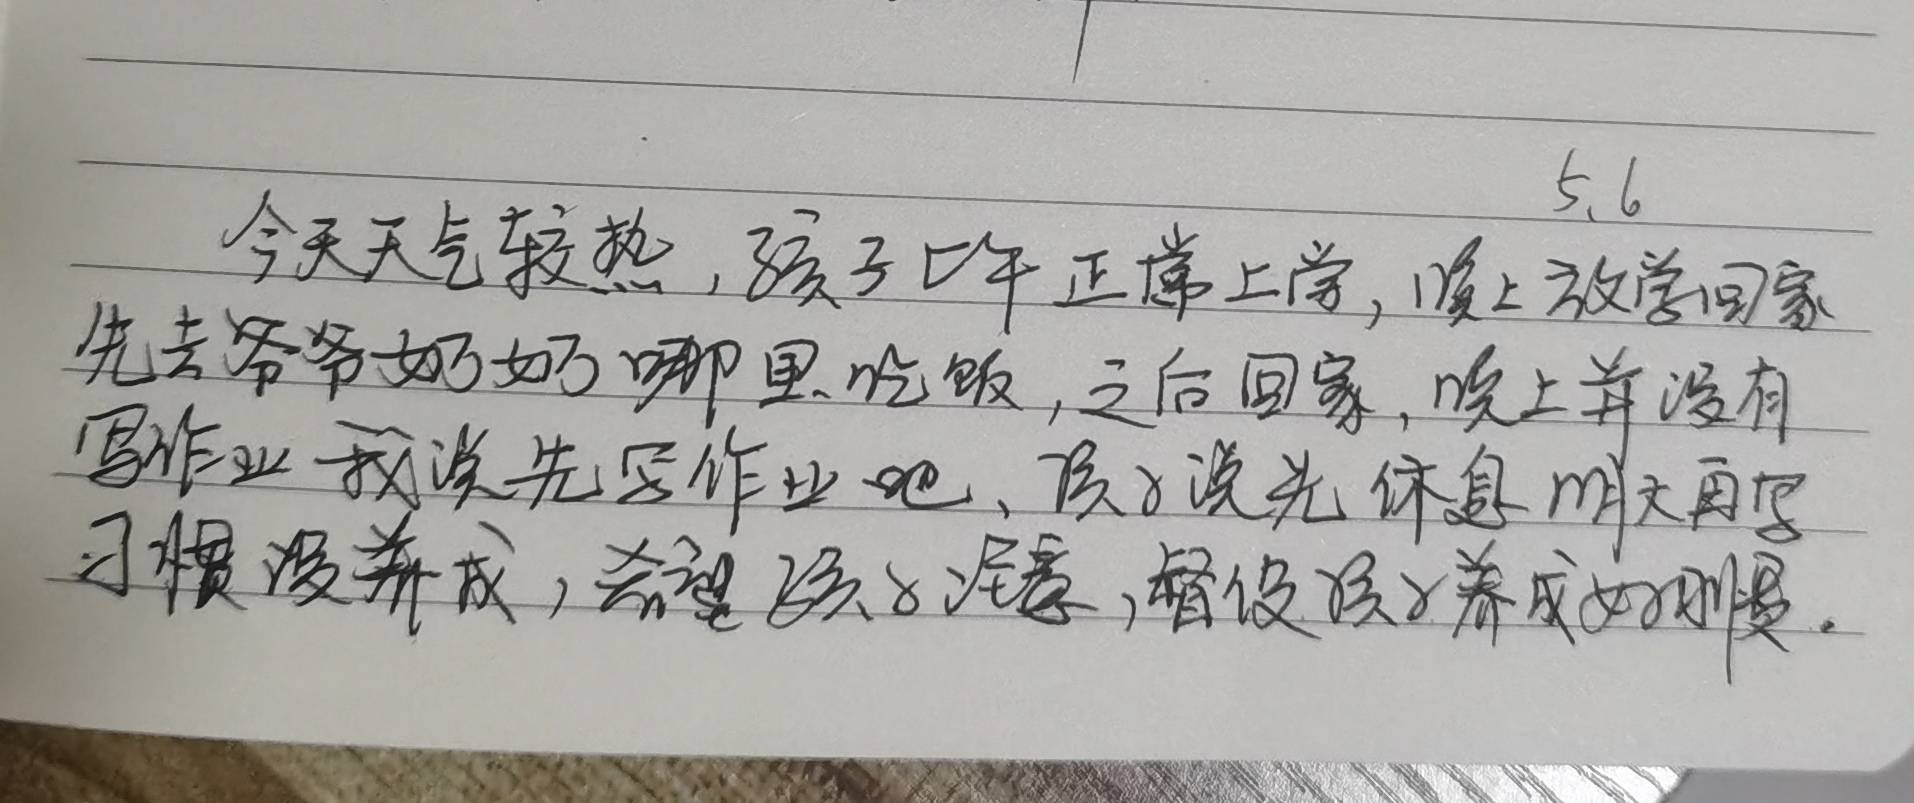 5.6
今天天气较热，孩子下午正常上学，晚上放学回家
先去爷爷奶奶哪里吃饭，之后回家，晚上并没有
写作业我说先写作业吧、孩子说先休息明天再写
习惯没养成，希望孩子注意，督促孩子养成好习惯.